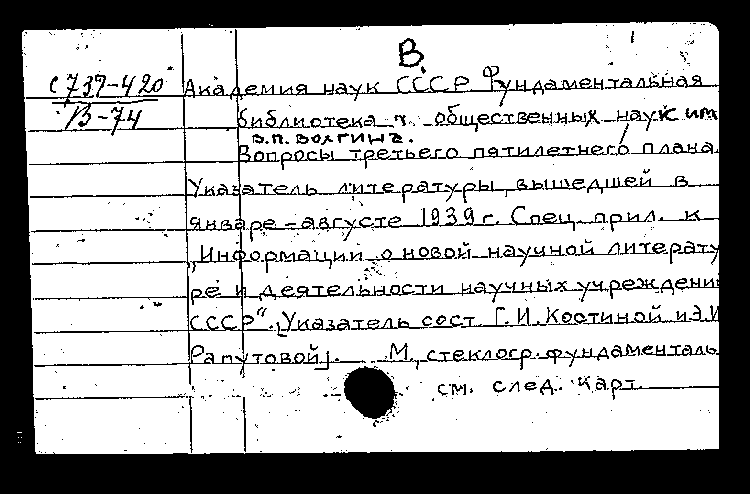 В.
С737-420
В-74
Академия наук СССР Фундаментальная
библиотека общественных наук им
В.П. ВОЛГИНА.
Вопросы третьего пятилетнего плана.
Указатель литературы, вышедшей в
январе-августе 1939 г. Спец. прил. к
„Информации о новой научной литерату
ре и деятельности научных учреждени
СССР". [Указатель сост. Г.И. Костиной и Э.И
Рапутовой]. М., стеклогр. фундаменталь
см. след. карт.